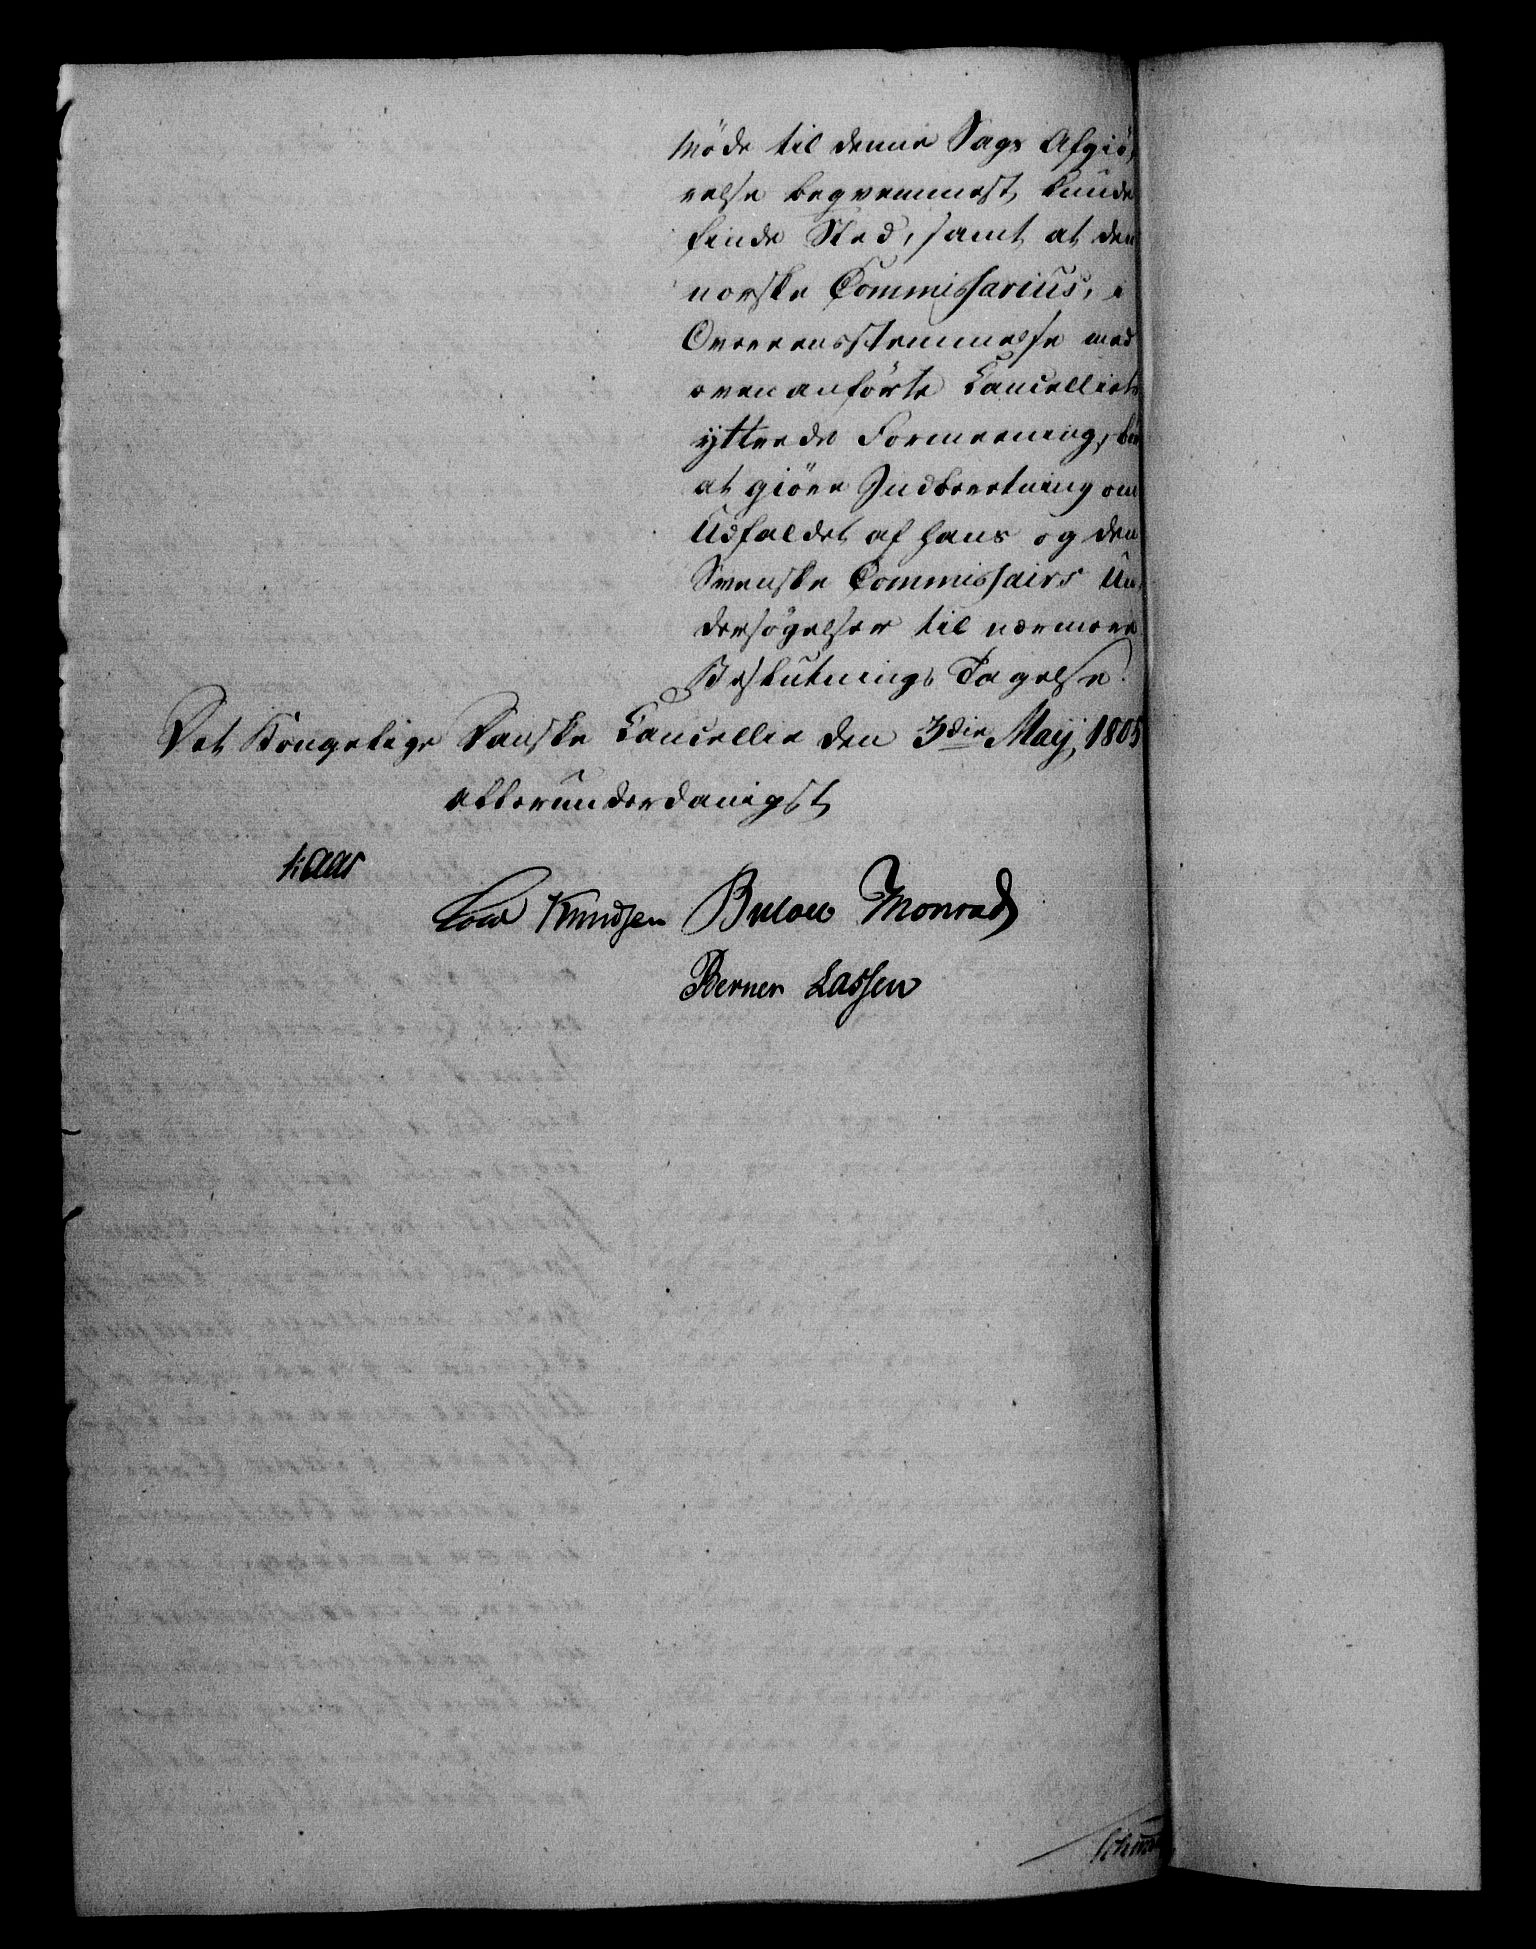 Møde til denne Sags Afgiø,
relse beqvemmest kunde
finde Sted, samt at den
norske Commissarius, i
Overeensstemmelse med
ovenanførte Cancelliets
yttrede Formeening, bør
at giøre Indberetning om
Udfaldet af hans og den
Svenske Commissairs Un,
dersøgelser til nærmere
Beslutnings Tagelse.
Det Kongelige Danske Cancellie den 3die Maij 1805
allerunderdanigst
Kaas
Cold Knudsen Bülow Monrad
Berner Lassen